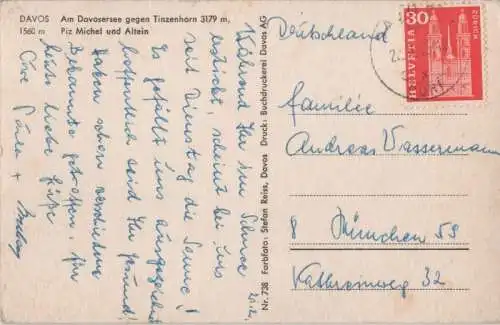 DAVOS Am Davosersee gegen Tinzenhorn 3179 m,
1560 m Piz Michel und Altein
21.2.
Während Ihr im Schnee
erstickt, scheint bei uns
seit Dienstag die Sonne!
Es gefällt uns ausgezeichnet
hoffentlich seid Ihr gesund!
Haben schon verschiedene
Bekannte getroffen. Für
heute liebe Grüße
Eure
Nr. 738 Farbfoto: Stefan Reiss, Davos Druck: Buchdruckerei Davos AG
Deutschland
Familie
Andreas Wassermann
8 München 59
32
30
HELVETIA
ZÜRICH